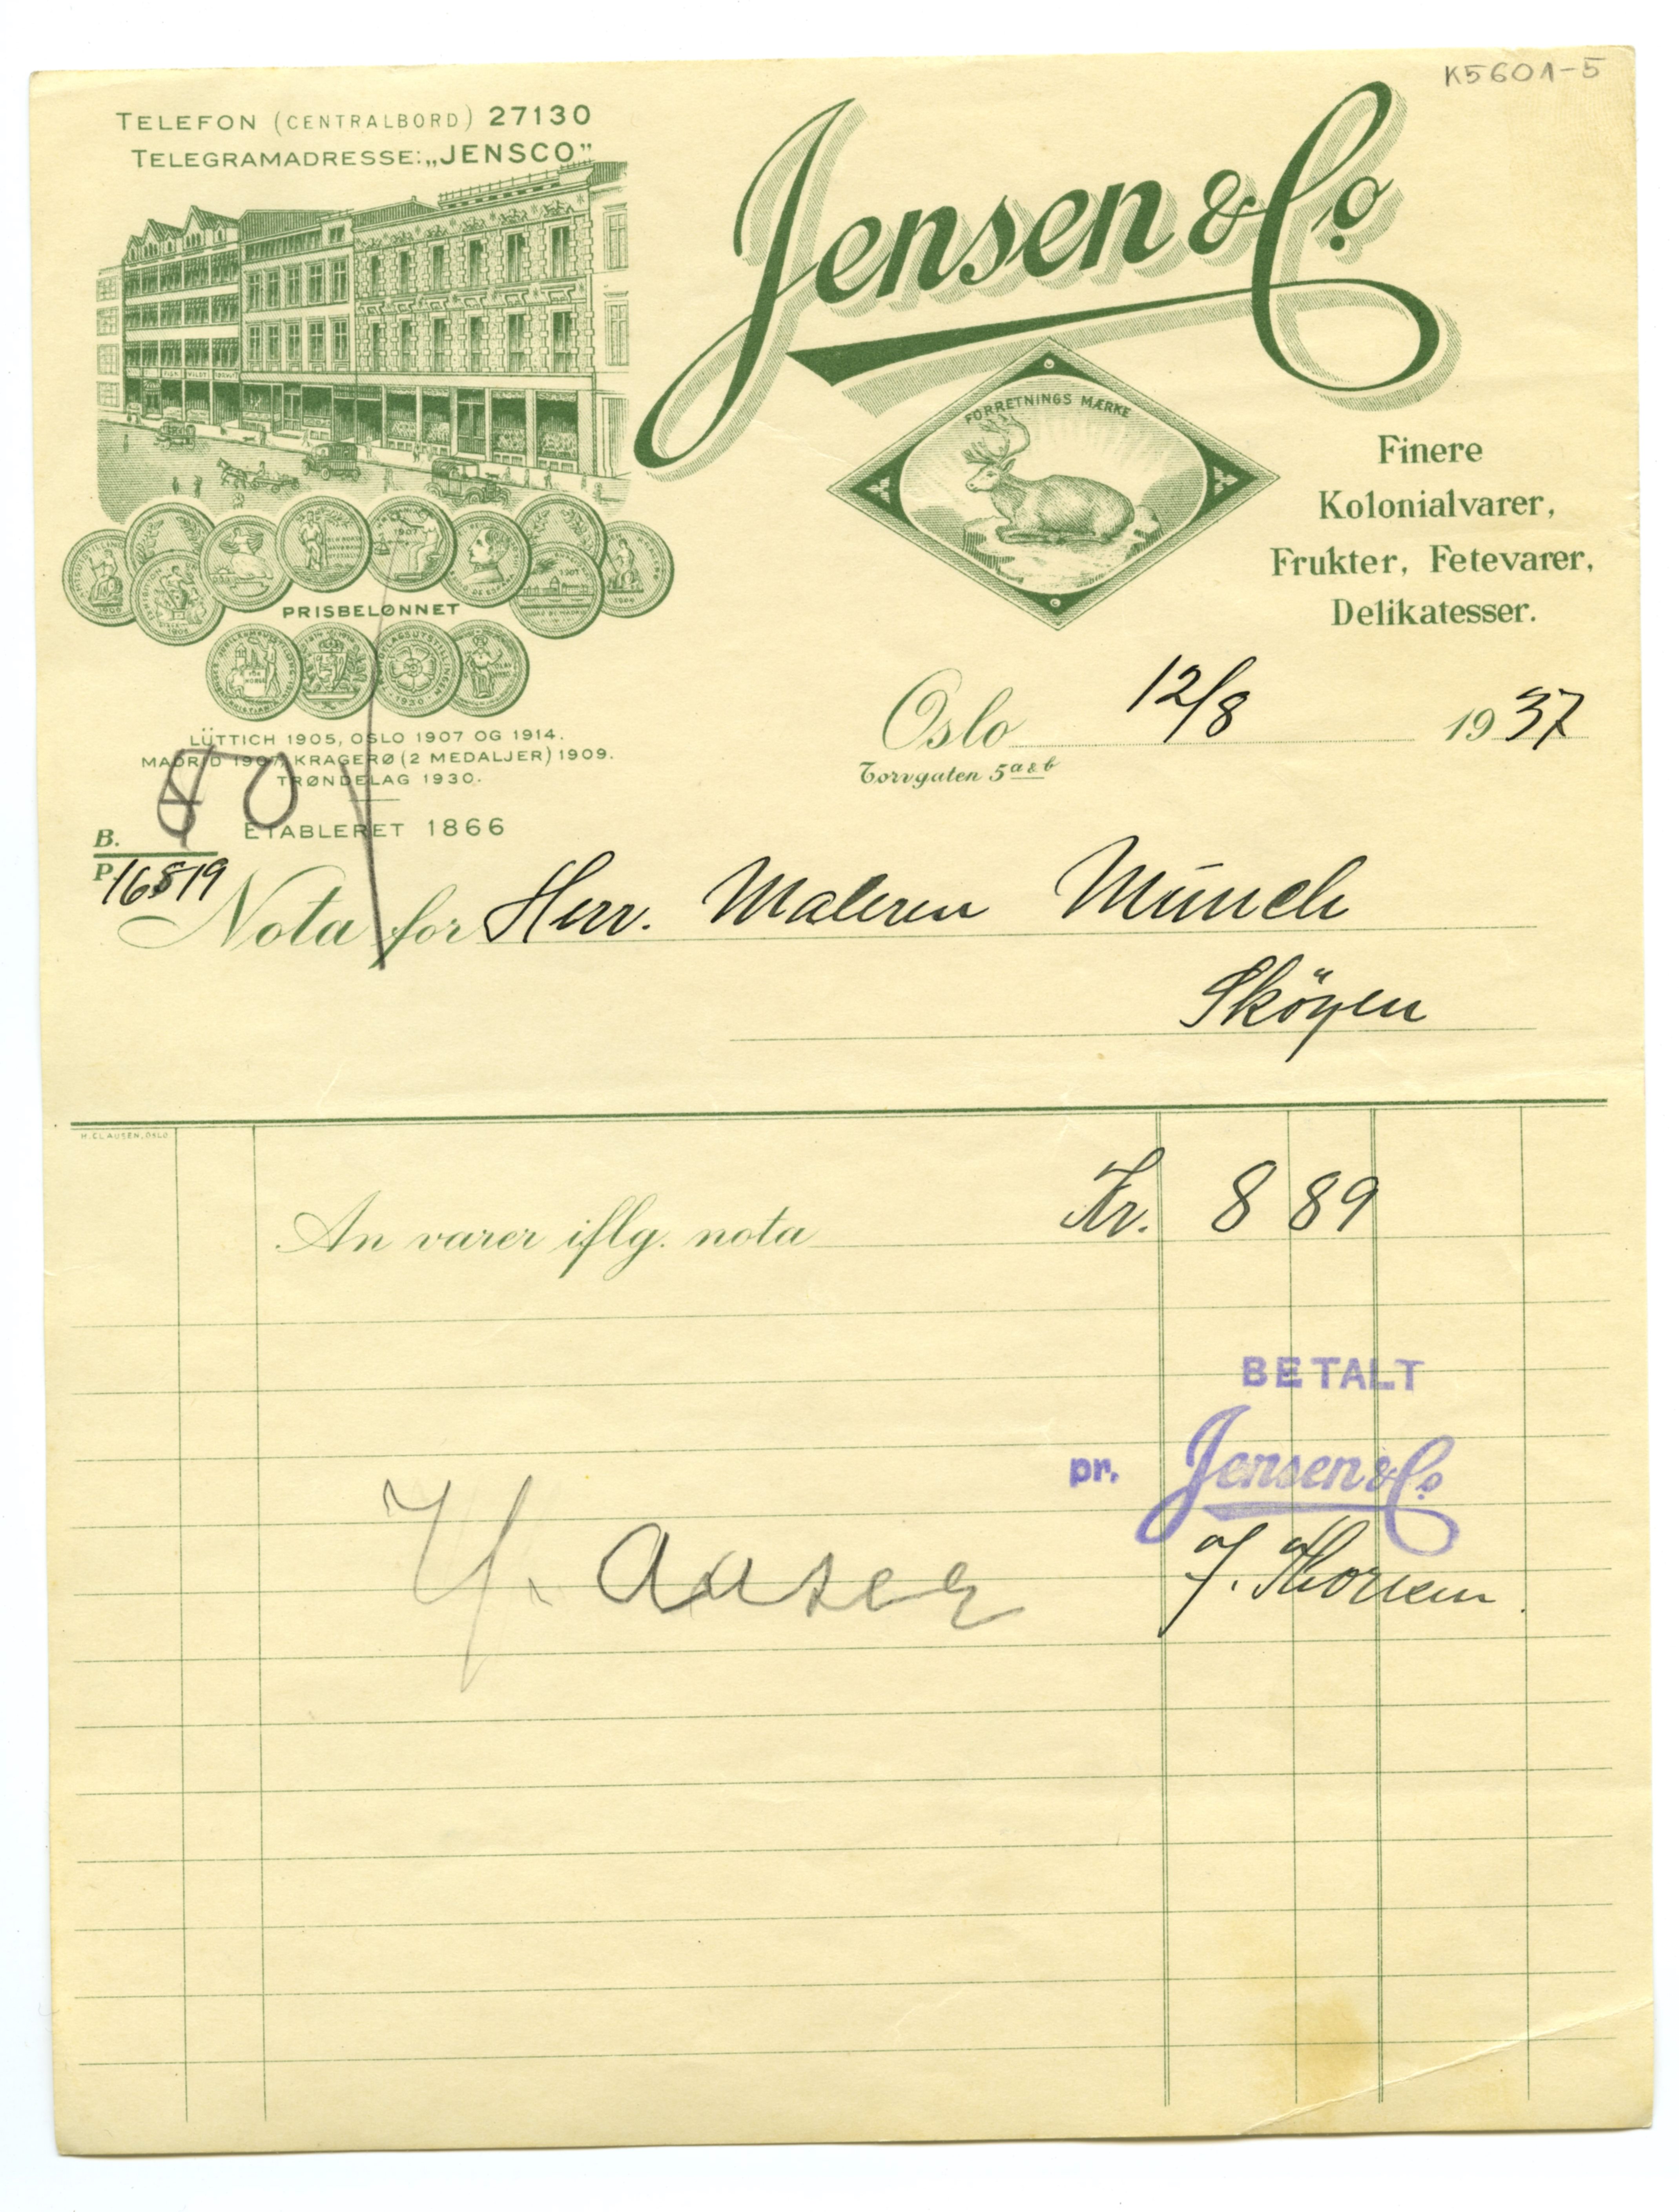 K5601-5
TELEFON (CENTRALBORD) 27130
TELEGRAMADRESSE: „JENSCO”
Jensen & Co.
FORRETNINGS MÆRKE
Finere
Kolonialvarer,
Frukter, Fetevarer,
Delikatesser.
PRISBELØNNET
LÜTTICH 1905, OSLO 1907 OG 1914.
MADRID 1907, KRAGERØ (2 MEDALJER) 1909.
TRØNDELAG 1930.
ETABLERET 1866
Oslo 12/8 1937
Torvgaten 5 a & b
B.
P. 16819
Nota for Herr. Maleren Münch
Sköyen
H. CLAUSEN, OSLO
An varer iflg. nota Kr. 8 89
BETALT
pr. Jensen & Co.